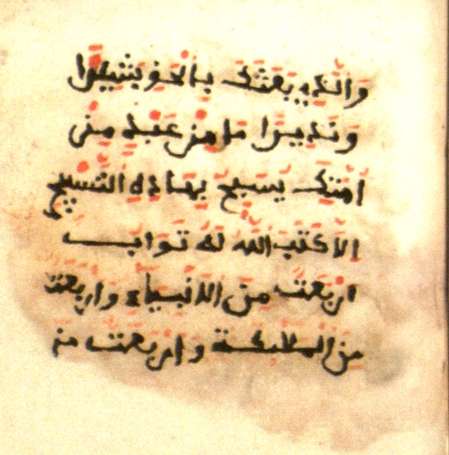 والذي بعثك بالحق بشيرا
ونذيرا ما من عبد من
امتك يسبح بهاذه التسبيح
الا كتب الله له ثواب
اربعت من الانبياء واربعت
من الملايكة واربعت من